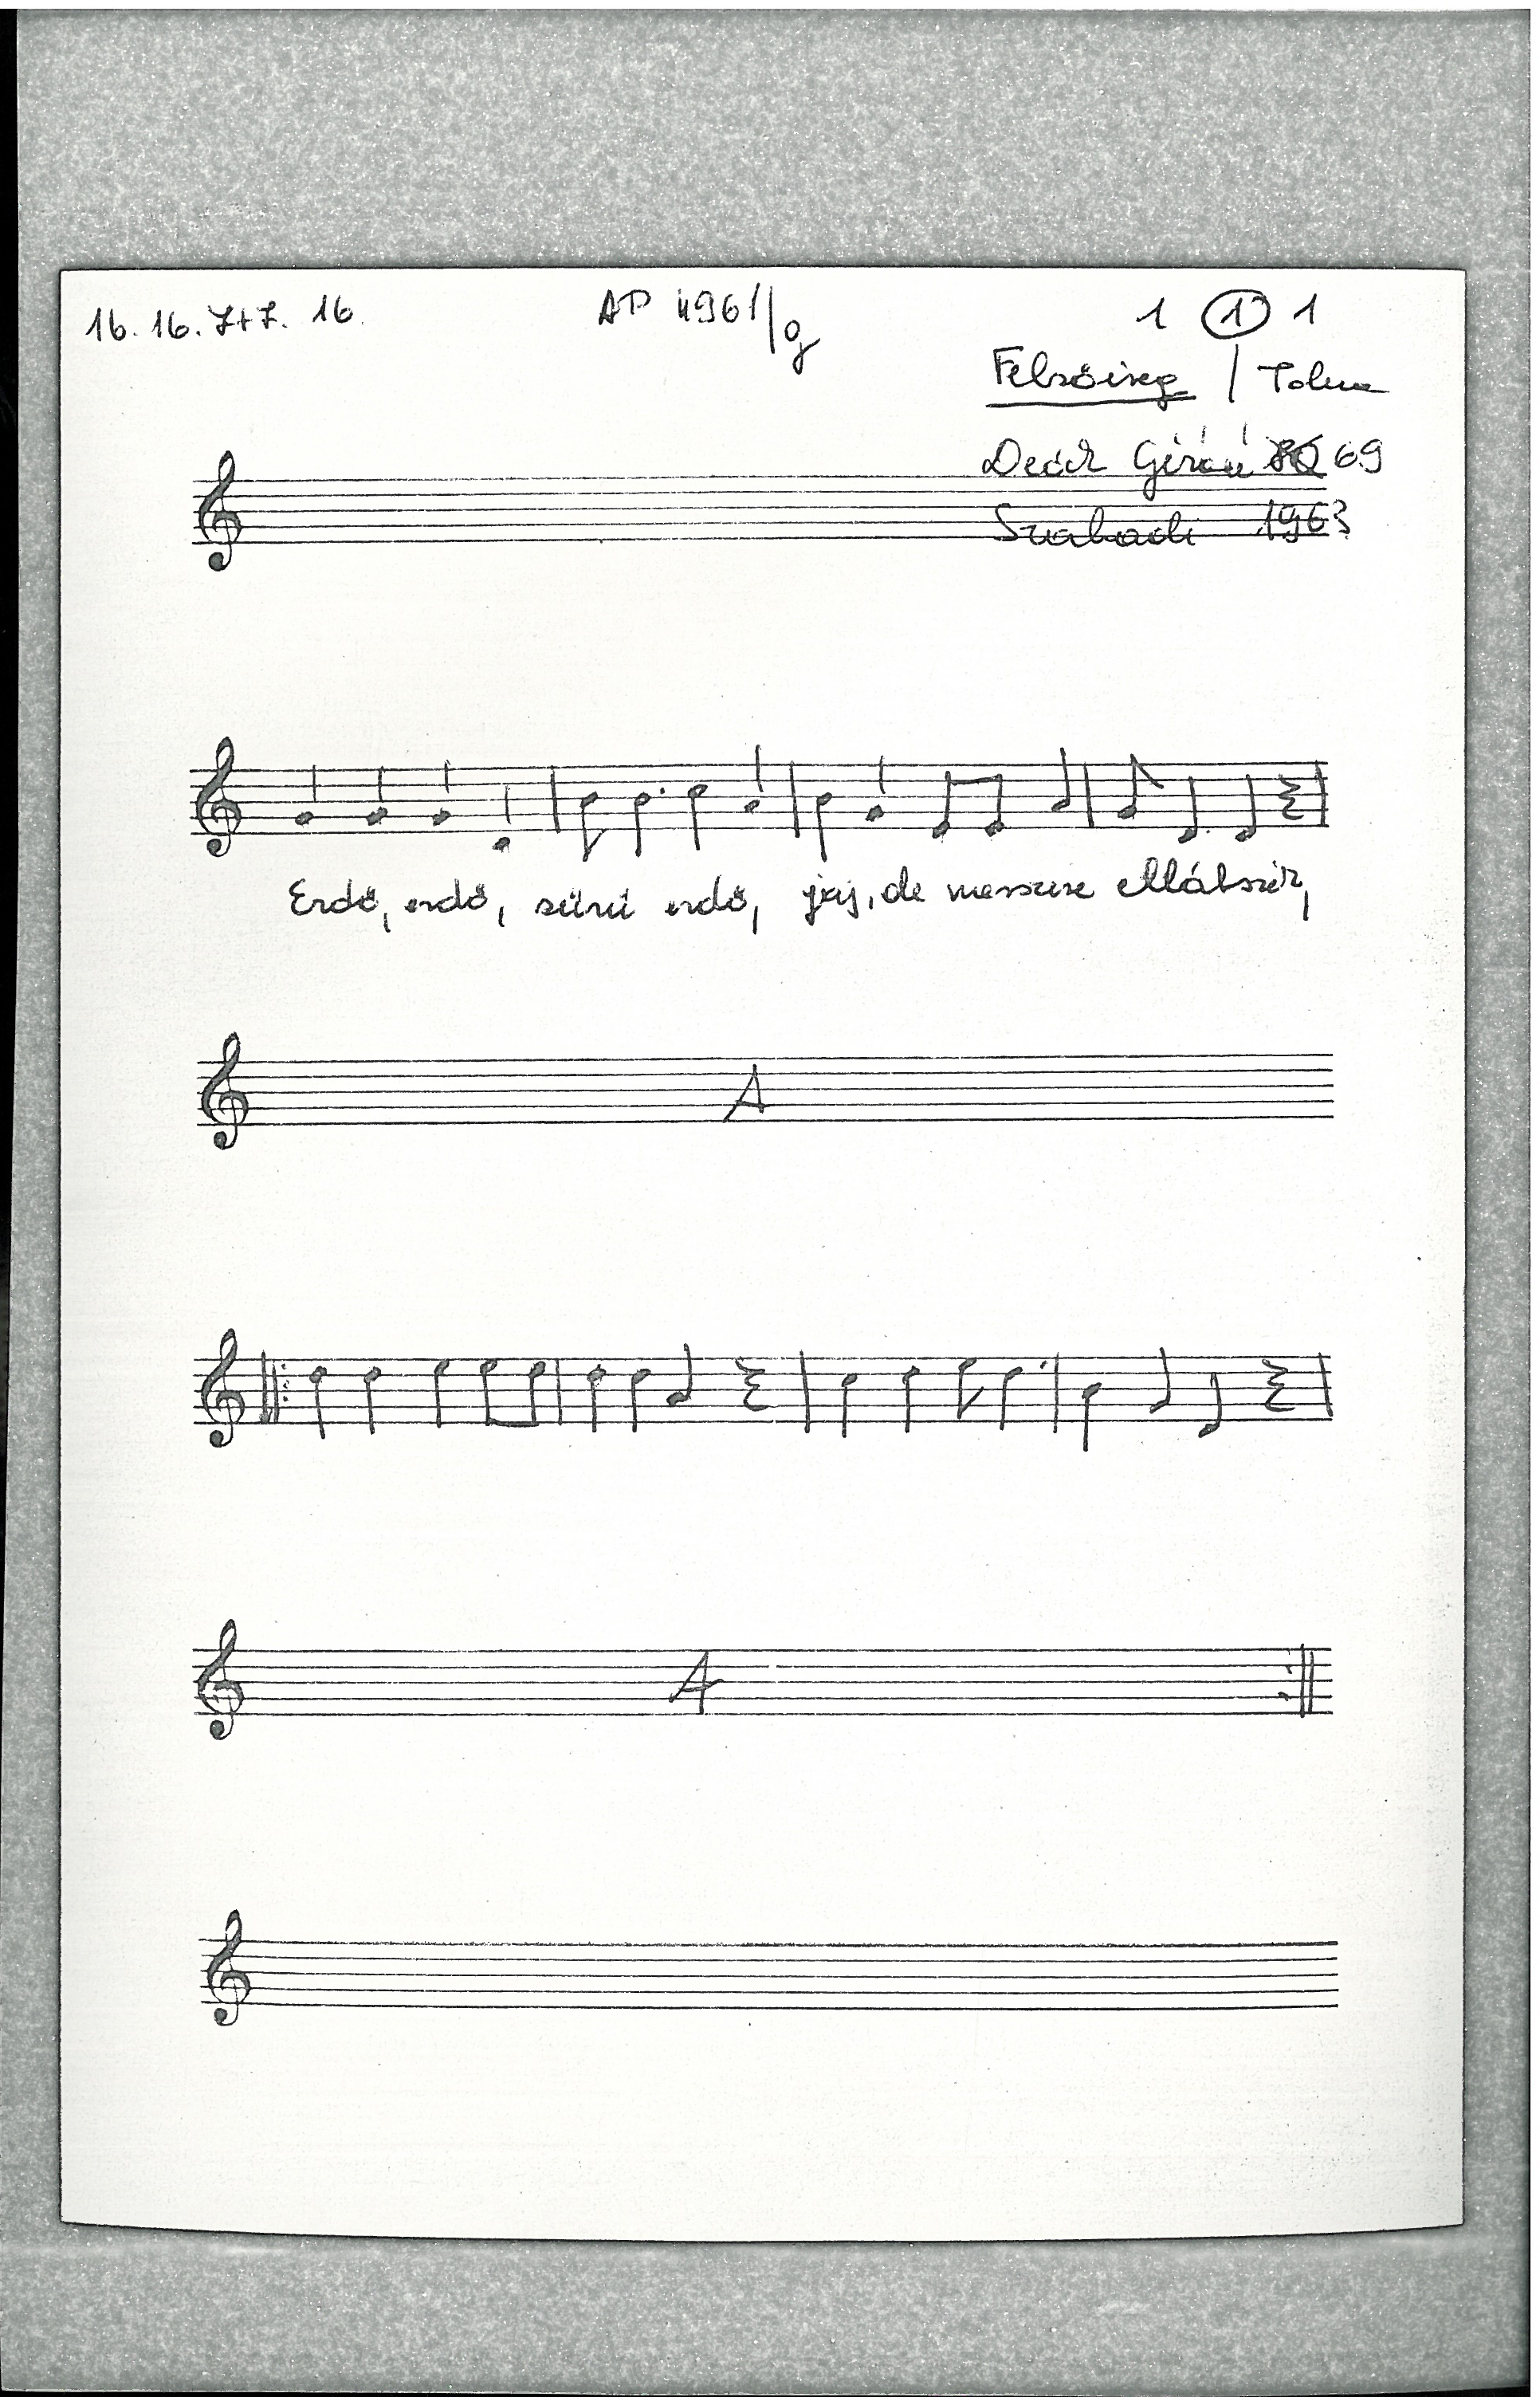 16. 16. 7+7. 16. AP 4961/g 1 1 1
Felsőireg / Tolna
Deák Gézáné 69
Szabadi 1963
Erdő, erdő, sürü erdő, jaj, de messzire ellátszik,
A
A